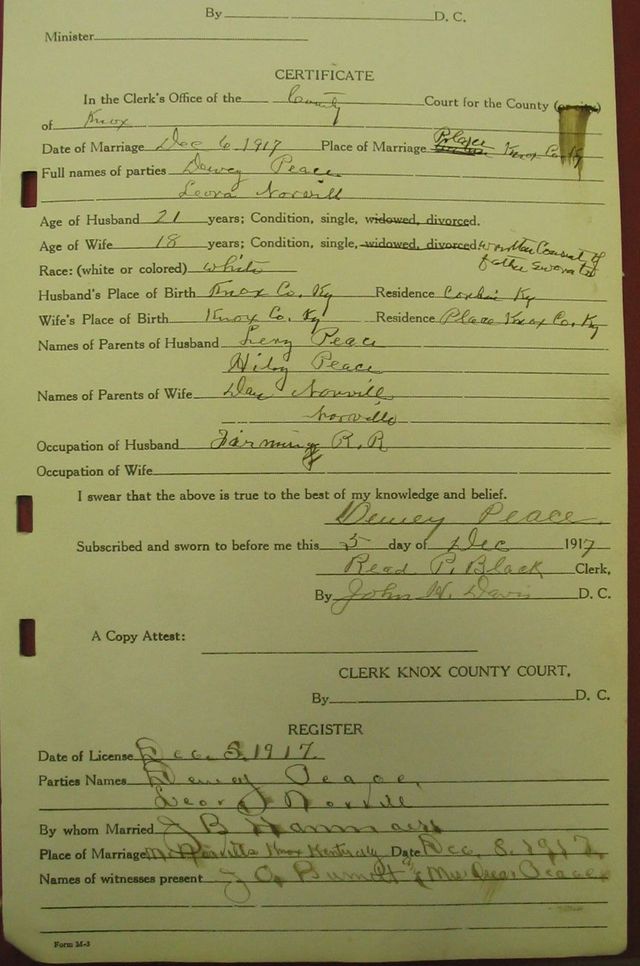 By D. C.
Minister
CERTIFICATE
In the Clerk's Office of the County Court for the County (or city)
of Knox
Date of Marriage Dec 6 1917 Place of Marriage Place Knox Co. Ky
Full names of parties Dewey Peace
Leora Norvill
Age of Husband 21 years; Condition, single, widowed, divorced.
Age of Wife 18 years; Condition, single, widowed, divorced. written Consent of
father
Race: (white or colored) white
Husband's Place of Birth Knox Co. Ky Residence Corbin Ky
Wife's Place of Birth Knox Co. Ky Residence Place Knox Co. Ky
Names of Parents of Husband Peace
Peace
Names of Parents of Wife Norvill
Norvill
Occupation of Husband Farming R. R
Occupation of Wife
I swear that the above is true to the best of my knowledge and belief.
Dewey Peace.
Subscribed and sworn to before me this 5 day of Dec 1917
Read P. Black Clerk,
By John H. Davis D. C.
A Copy Attest:
CLERK KNOX COUNTY COURT,
By D. C.
REGISTER
Date of License Dec. 5, 1917.
Parties Names Dewey Peace,
Norvill
By whom Married J B
Place of Marriage Knox Kentucky Date Dec. 1917.
Names of witnesses present & Mrs Peace
Form M-3